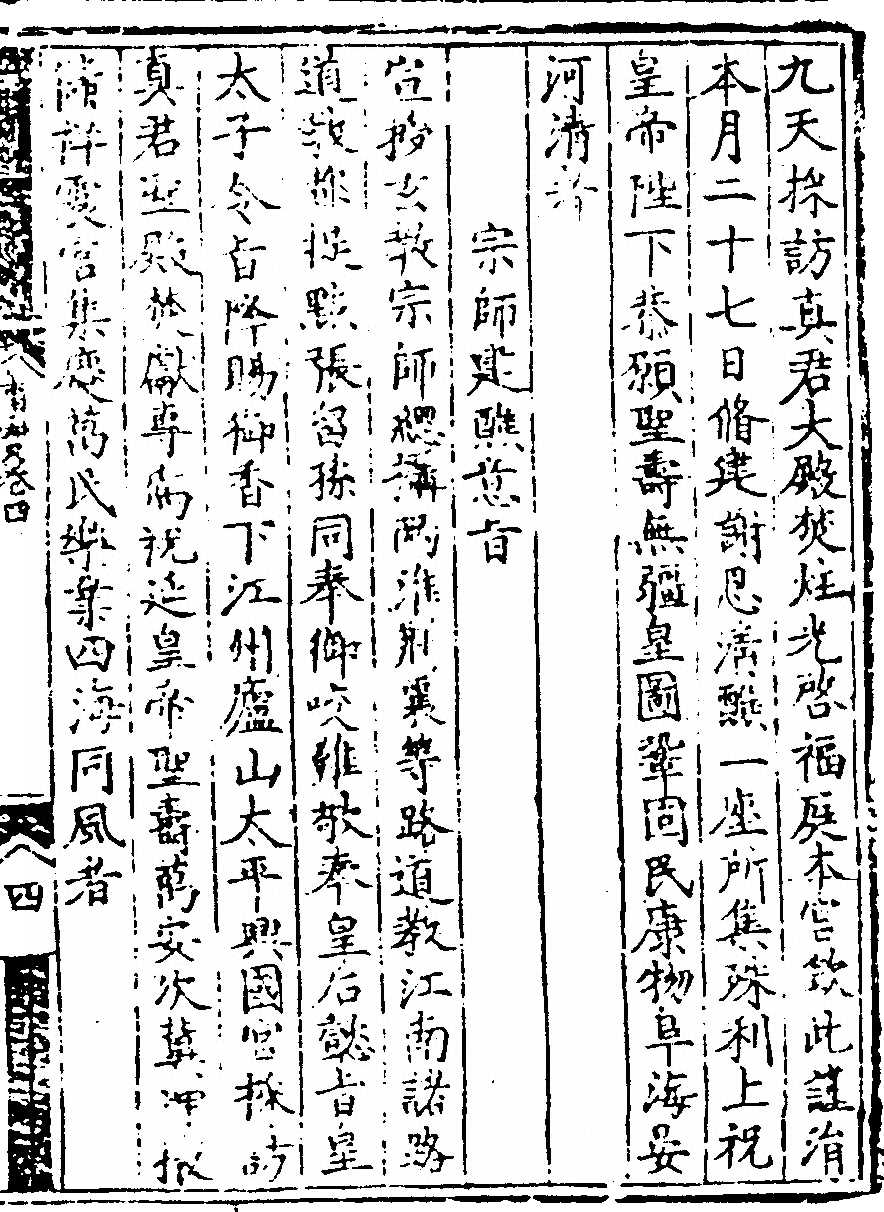 九天採訪真君大殿焚炷光啓福庭本宮欽此謹涓
本月二十七日脩建謝恩清醮一座所集殊利上祝
皇帝陛下恭願聖壽無疆皇圖鞏固民康物阜海晏
河清者
宗師建醮意旨
宣授玄教宗師總攝兩淮荆襄等路道教江南諸路
道教都提點張留孫同奉御咬難敬奉皇后懿旨皇
太子令旨降賜御香下江州廬山太平興國宮採訪
真君聖殿焚獻專為祝延皇帝聖壽萬安次冀沖
禎祥靈宮集慶萬民樂業四海同風者
卷四
四